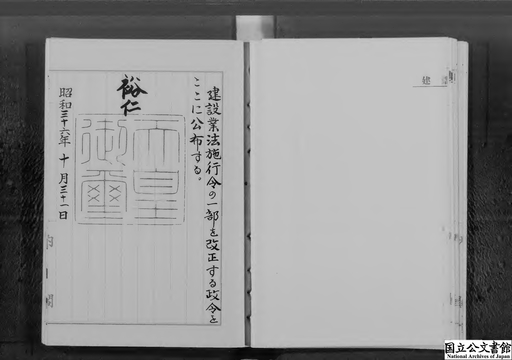 建設業法施行令の一部を改正する政令を
ここに公布する。
裕仁
天皇
御璽
昭和三十六年十月三十一日
国立公文書館
National Archives of Japan